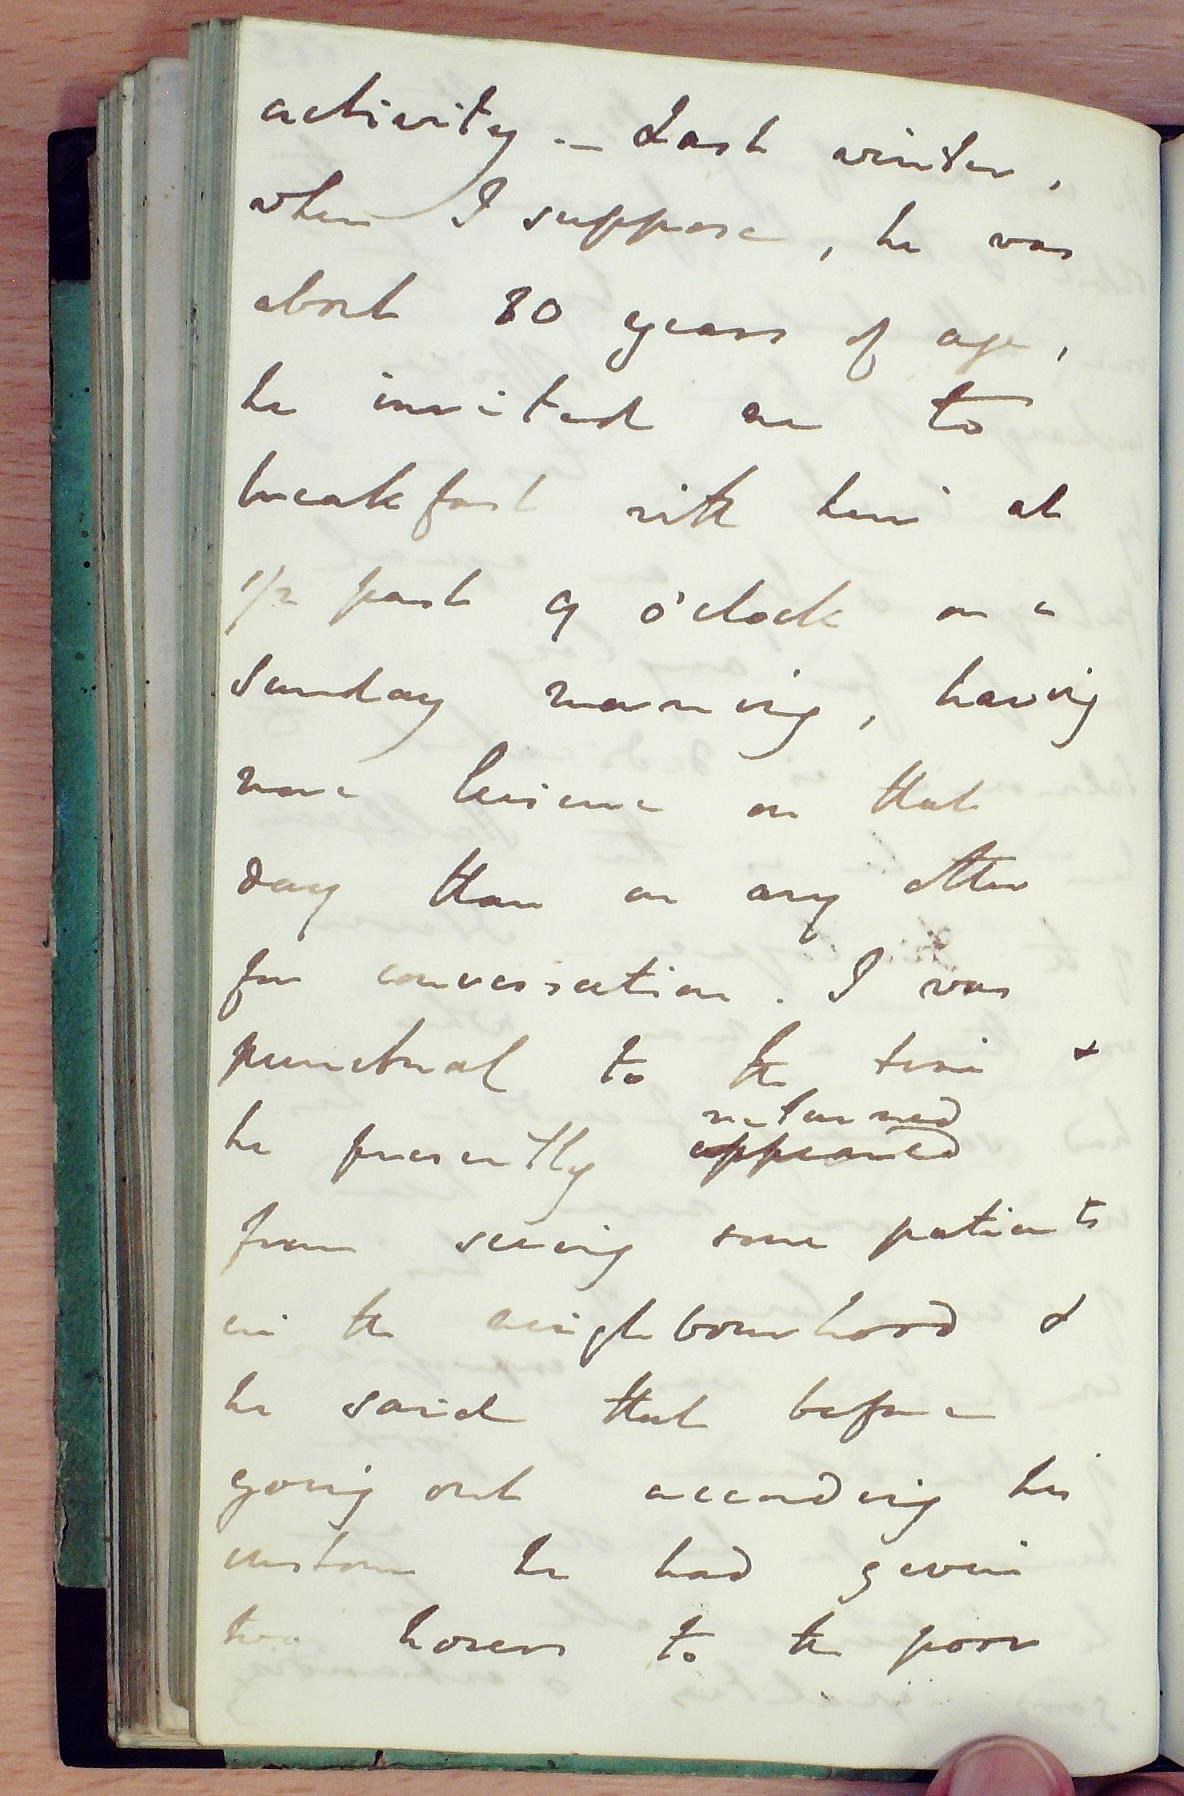 activity – Last winter,
when I suppose, he was
about 80 years of age,
he invited me to
breakfast with him at
1/2 past 9 o'clock on a
Sunday morning, having
more leisure on that
day than on any other
for conversation. I was
punctual to the time &
returned
he presently appeared
from seeing some patients
in the neighbourhood &
he said that before
going out according his
custom he had given
two hours to the poor